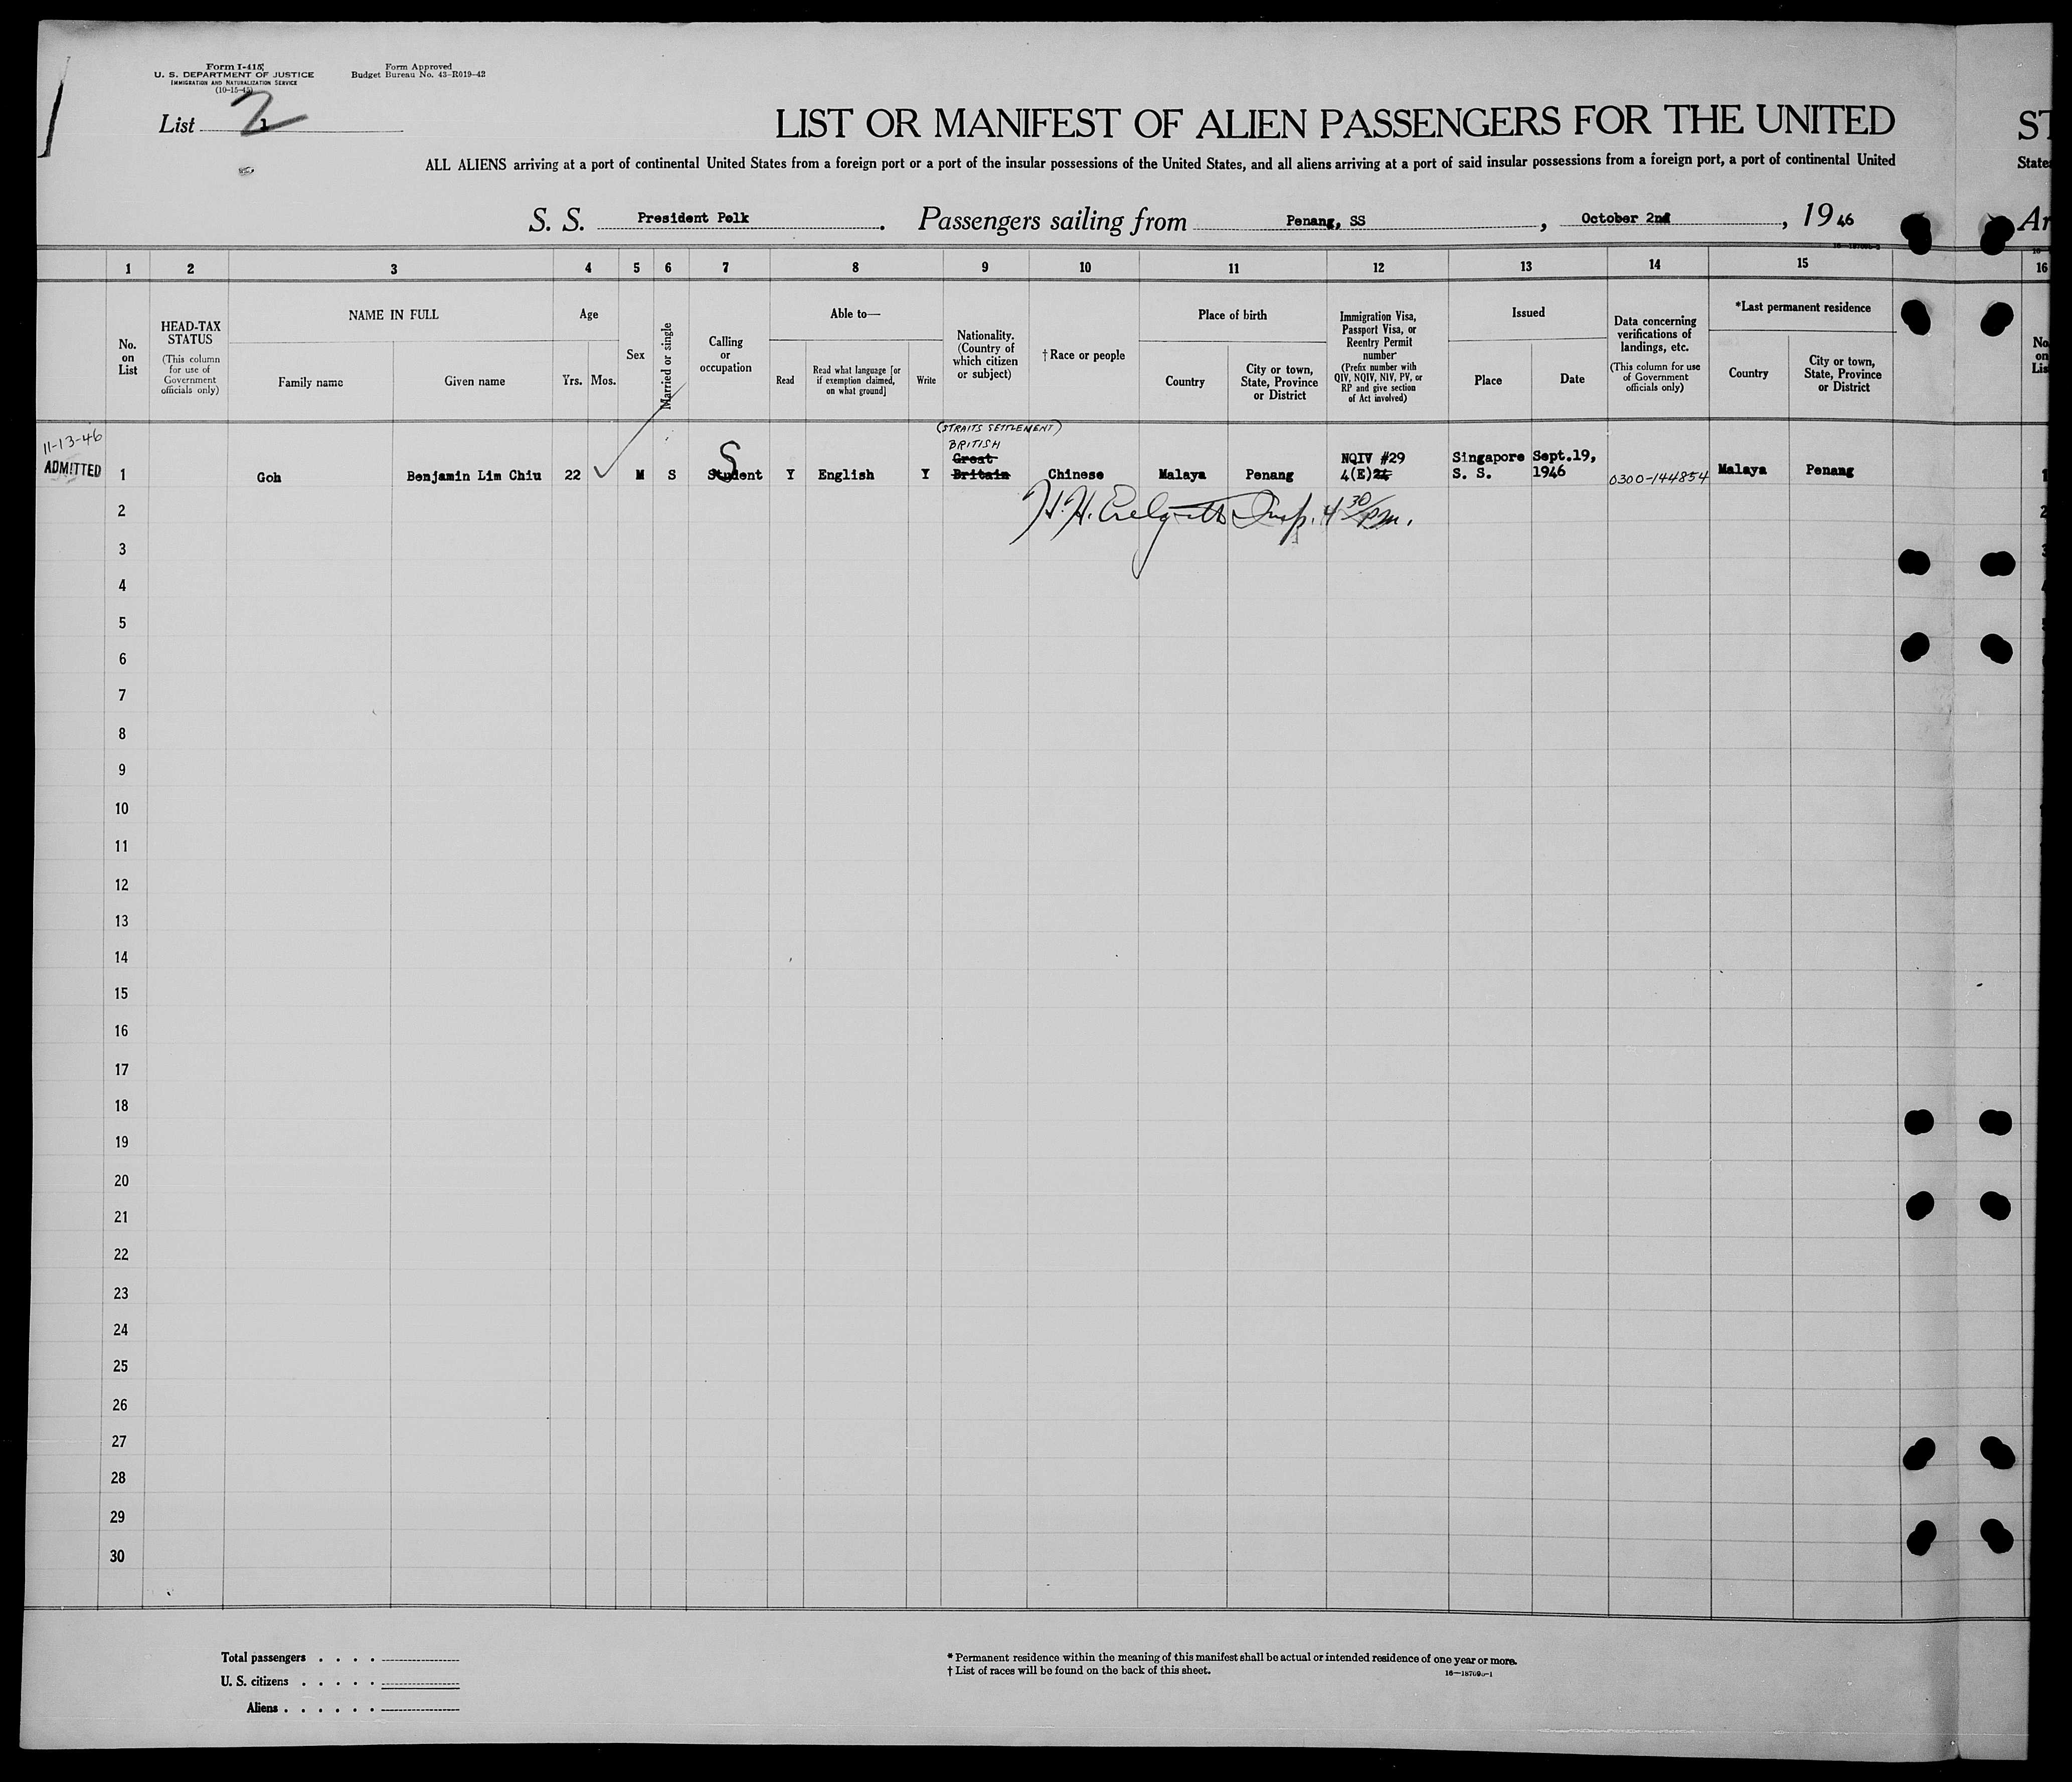 Form I-415
U. S. DEPARTMENT OF JUSTICE
IMMIGRATION AND NATURALIZATION SERVICE
(10-15-45)
Form Approved
Budget Bureau No. 43-R019-42
List 2
LIST OR MANIFEST OF ALIEN PASSENGERS FOR THE UNITED
ST
ALL ALIENS arriving at a port of continental United States from a foreign port or a port of the insular possessions of the United States, and all aliens arriving at a port of said insular possessions from a foreign port, a port of continental United
State
S. S. President Polk. Passengers sailing from Penang, SS, October 2nd, 1946
Ar
1 2 3 4 5 6 7 8 9 10 11 12 13 14 15 16
No. on List
HEAD-TAX STATUS
(This column for use of Government officials only)
NAME IN FULL
Family name
Given name
Age
Yrs.
Mos.
Sex
Married or single
Calling or occupation
Able to—
Read
Read what language [or if exemption claimed, on what ground]
Write
Nationality. (Country of which citizen or subject)
†Race or people
Place of birth
Country
City or town, State, Province or District
Immigration Visa, Passport Visa, or Reentry Permit number
(Prefix number with QIV, NQIV, NIV, PV, or RP and give section of Act involved)
Issued
Place
Date
Data concerning verifications of landings, etc.
(This column for use of Government officials only)
*Last permanent residence
Country
City or town, State, Province or District
No
on
Lis
11-13-46
ADMITTED
(STRAITS SETTLEMENT)
BRITISH
Great
Britain
1 Goh Benjamin Lim Chiu 22 M S Student S Y English Y Chinese Malaya Penang NQIV #29 4(E) Singapore S. S. Sept.19, 1946 0300-144854 Malaya Penang
H.H. Insp. 4 30/pm.
2
3
4
5
6
7
8
9
10
11
12
13
14
15
16
17
18
19
20
21
22
23
24
25
26
27
28
29
30
Total passengers . . . .
U. S. citizens . . . . .
Aliens . . . . . .
* Permanent residence within the meaning of this manifest shall be actual or intended residence of one year or more.
† List of races will be found on the back of this sheet.